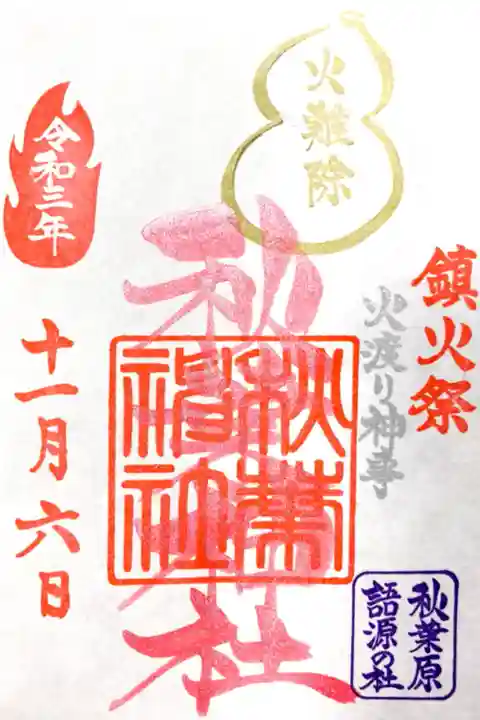 鎮火祭
火渡り神事
火難除
秋葉神社
秋葉
神社
秋葉原
語源の社
令和三年
十一月六日